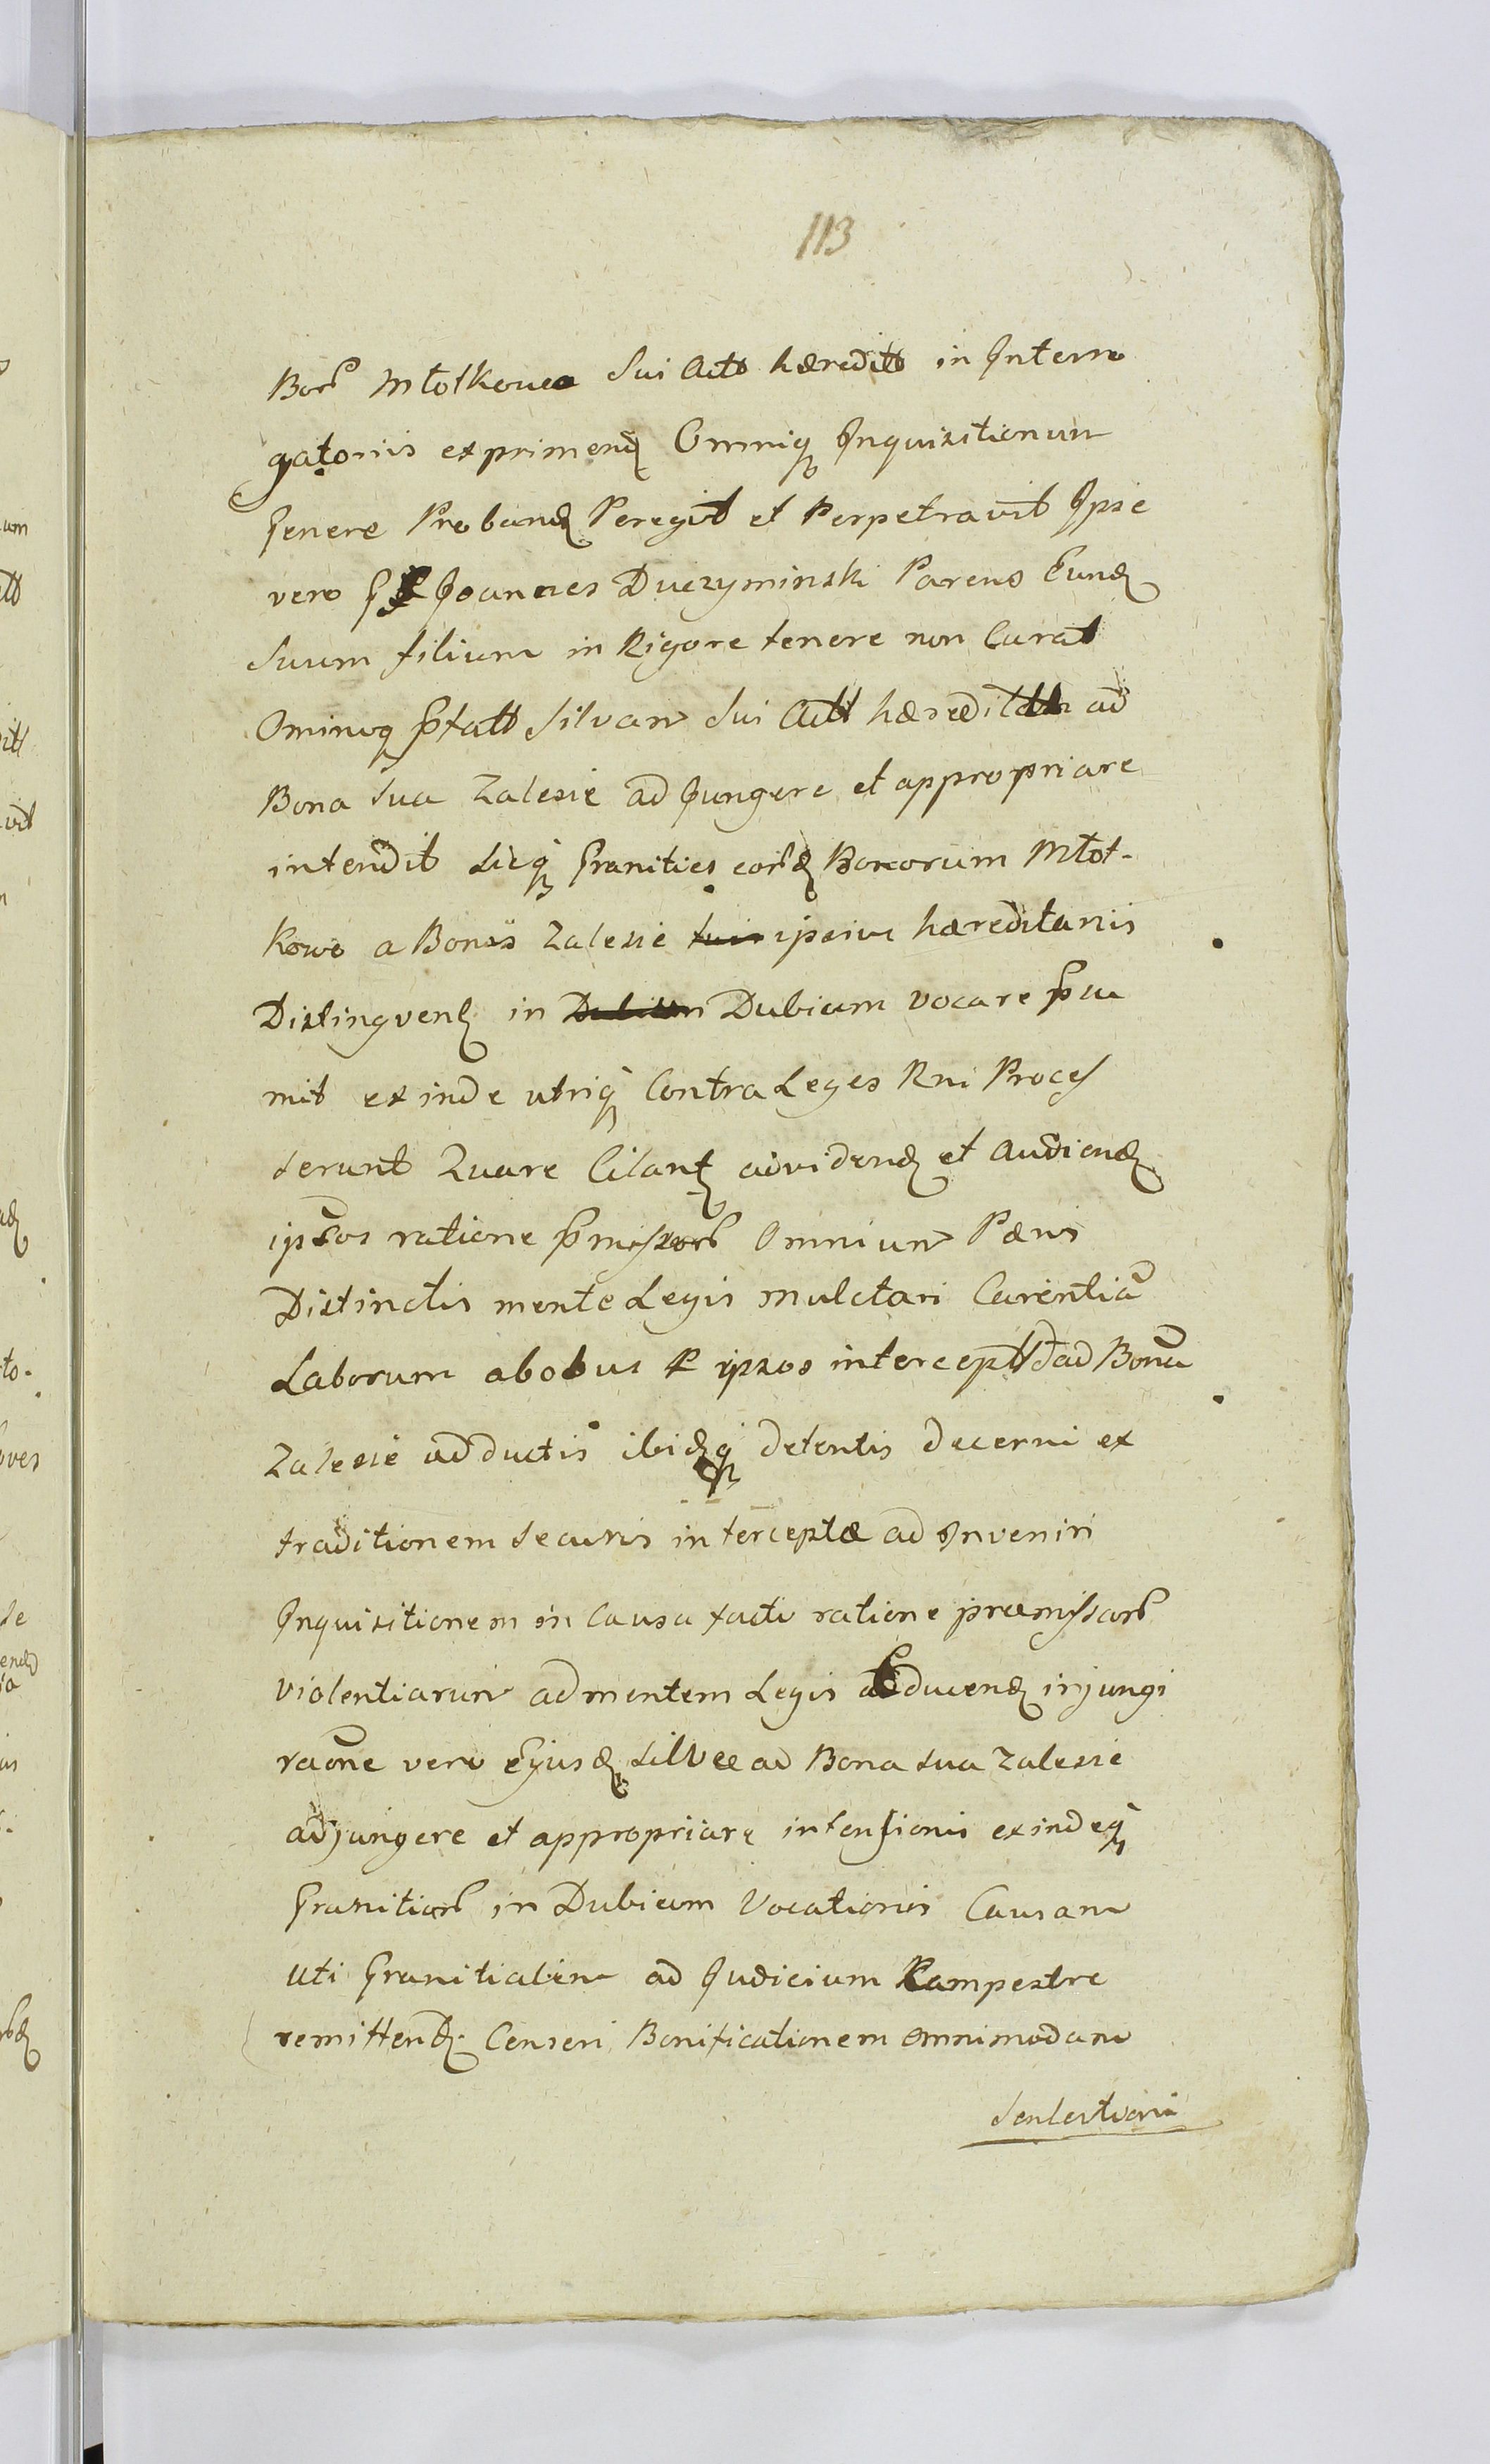 113
Bor̃ Młotkowo Sui Actt hæreditt in Interro
gatoriis exprimend Omniq Inquisitionum
genere Proband Peregit et Perpetravit Ipse
vero G Joannes Duczyminski Parens Eund
Suum filium in Rigore tenere non Curat
Ominuq p̃fatt Silvam Sui Actt hæreditt ad
Bona sua Zalesie ad Jungere et appropriare
intendit sicq Granities eor̃d Bonorum Młot-
kowo a Bonis Zalesie ipsius hæreditariis
Distingvend in Dubium vocare p̃su
mit exinde utriq Contra Leges Rni Proces
serunt Quare Citant ad vidend et Audiend
ipsos ratione p̃missor̃ Omnium Pænis
Distinctis mente Legis mulctari Carentiã
Laborum a bobus P ipsos intercept et ad Bona
Zalesie adductis ibidq detentis decerni ex
traditionem securis interceptæ ad Inveniri
Inquisitionem in Causa facti ratione præmissor̃
violentiarum ad mentem Legis adducend injungi
raõne vero Ejusd Silvæ ad Bona sua Zalesie
adjungere et appropriare intensionis exindeq
Granitier̃ in Dubium Vocationis Causam
uti Granitialem ad Judicium Kampestre
remittend Censeri Bonificationem omnimodam